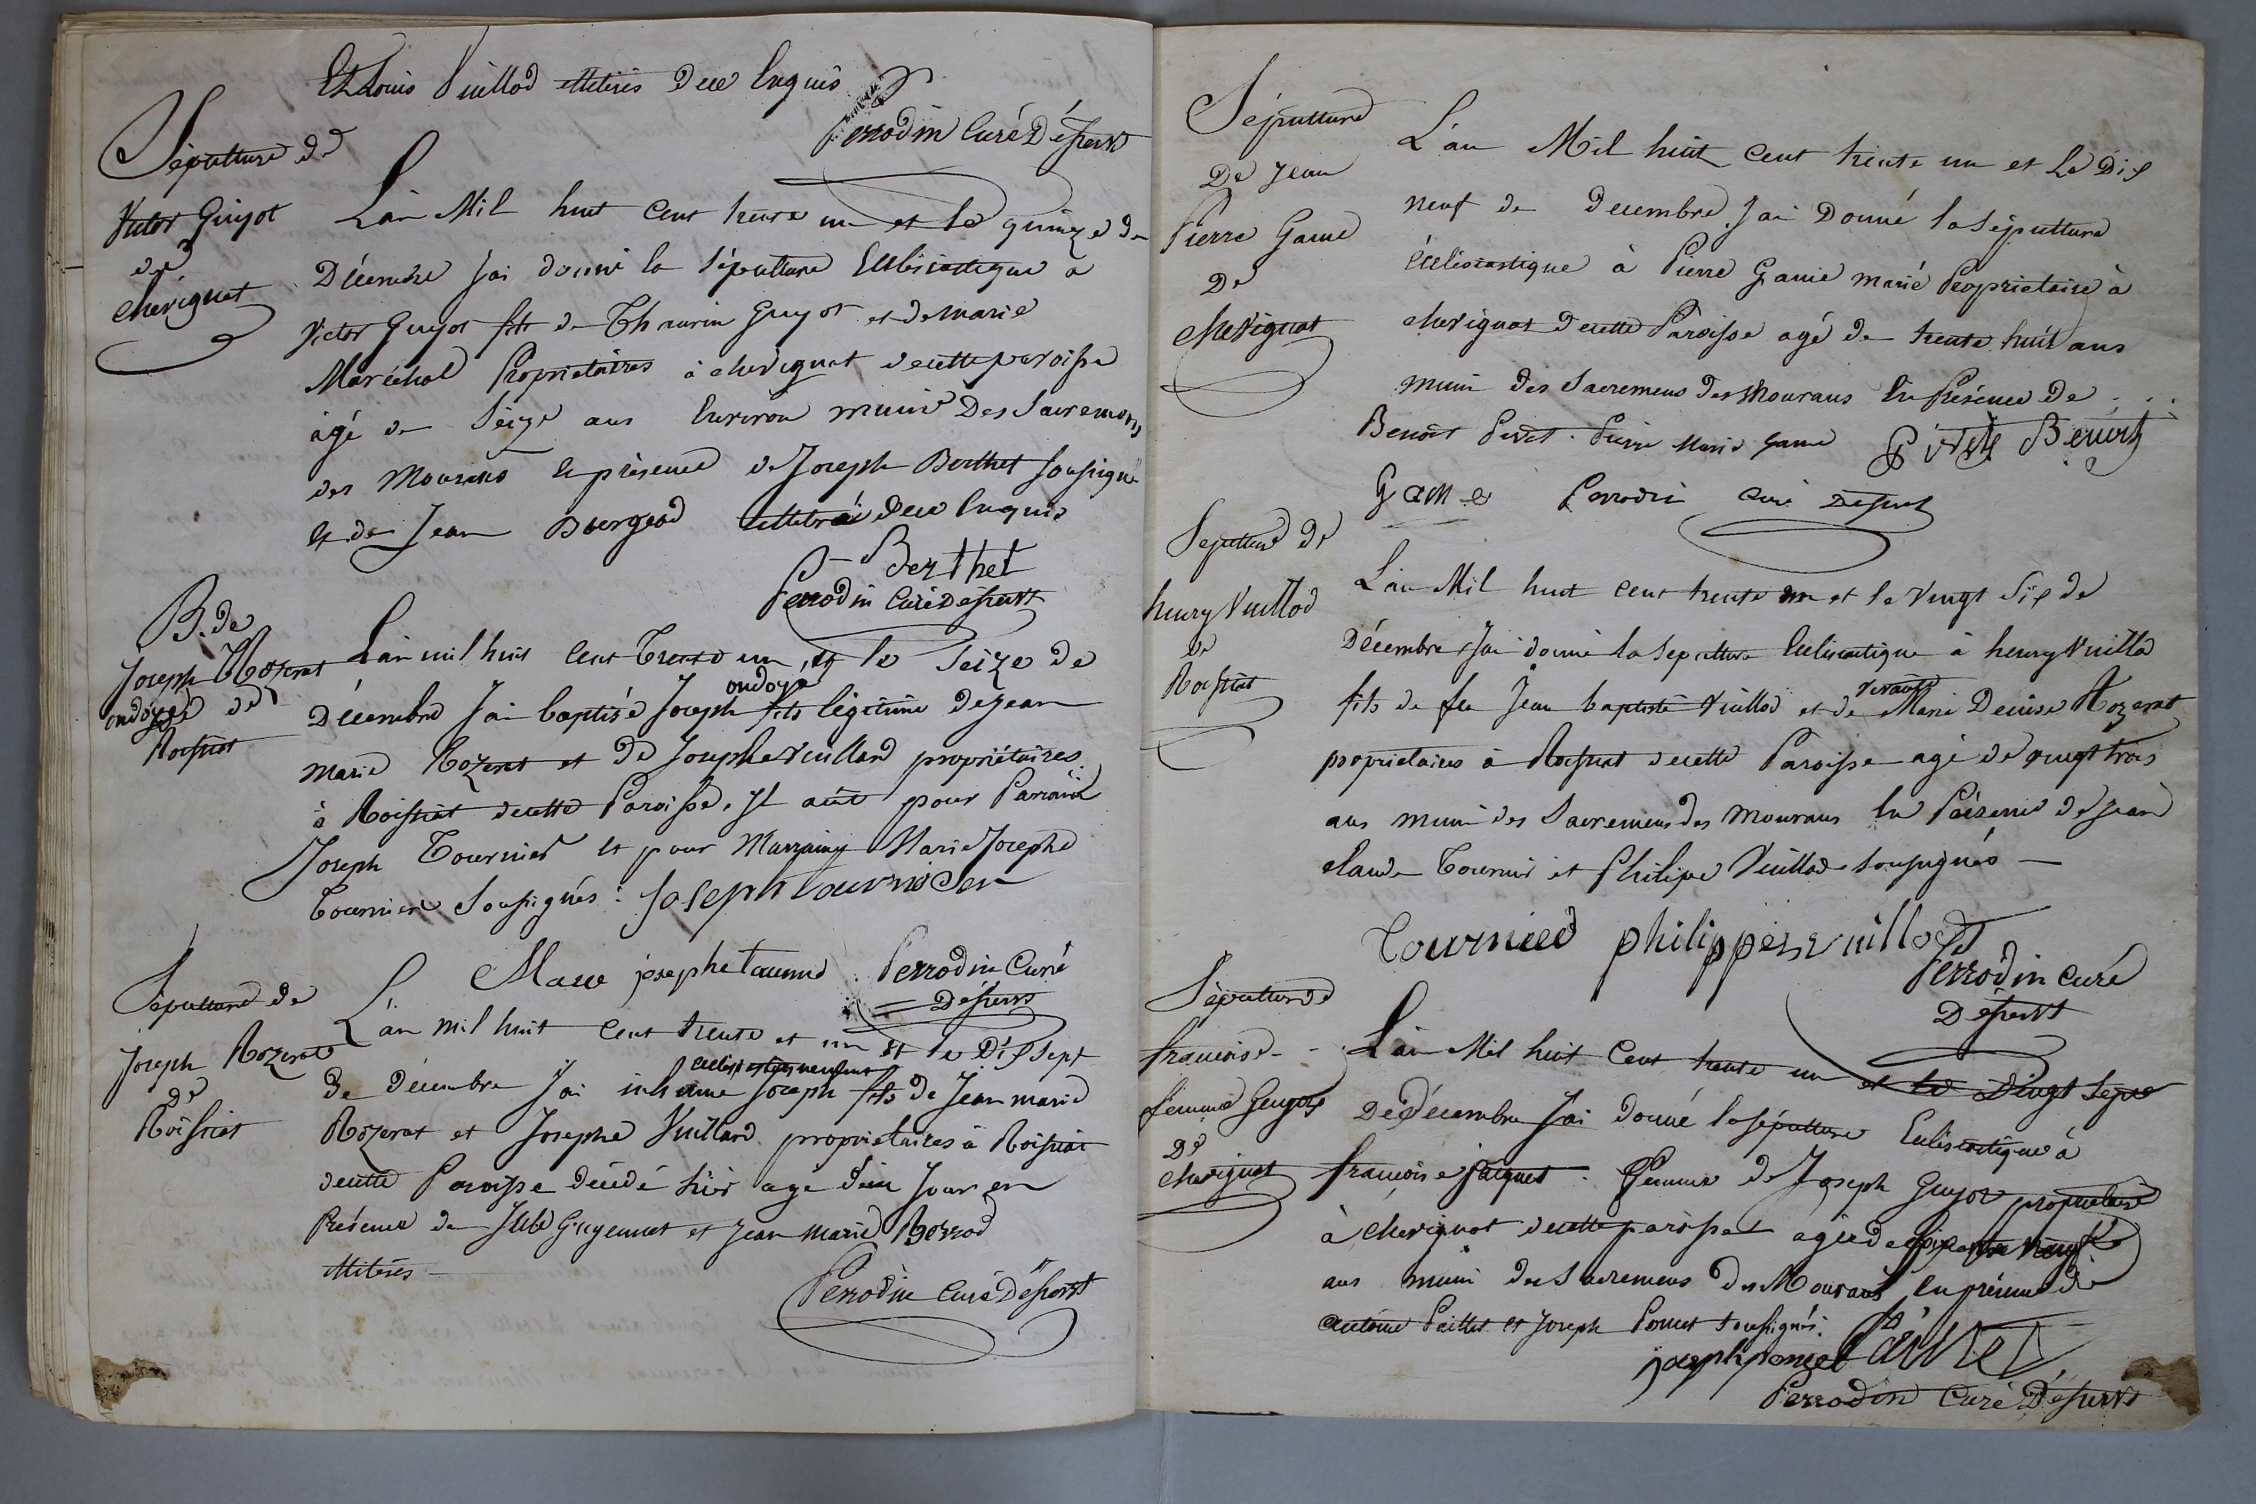 Et Louis Vuillod illitérés dece Enquis
Perrodin Curé Déservt
Sépulture de
Victor Guyot
de
Chevignat
L'an Mil huit cent trente un et le quinze de
Décembre J'ai donné la Sépulture Ecclésiastique à
Victor Guyot fils de Thaurin Guyot et de marie
Maréchal Propriétaires à chevignat decette paroisse
âgé de Seize ans Environ muni Des Sacremens
des Mourans En présence de Joseph Berthet Soussigné
et de Jean Bourgeod illétré dece Enquis
Berthet
Perrodin Curé Deservt
B. de
Joseph Rozerat
ondoyé de
Roissiat
L'an mil huit Cent Trente un et le Seize de
ondoyé
Décembre J'ai baptisé Joseph fils légitime de jean
marie Rozerat et De Josephe Vuillard propriétaires
à Roissiat decette Paroisse. Jl a eû pour Parrain
Joseph Tournier et pour Marraine Marie Josephe
Tournier Soussignés : Joseph tournier
Marie josephe tournie Perrodin Curé
Déservt
Sépulture de
Joseph Rozerat
De
Roissiat
L'an mil huit Cent trente et un et le Dix Sept
ecclésiastiquement
De décembre J'ai inhumé Joseph fils De Jean marie
Rozerat et Josephe Vuillard propriétaires à Roissiat
decette Paroisse décédé hier age d'un Jour en
Présence de Guyennet et Jean marie
illiterés
Perrodin Curé Déservt
Sépulture
De Jean
Pierre Game
De
chevignat
L'an Mil huit Cent trente un et Le Dix
neuf de Decembre J'ai Donné la Sépulture
écclésiastique à Pierre Game marié Propriétaire à
chevignat Decette Paroisse agé de trente huit ans
muni des Sacremens des Mourans En Présence De . . .
Benoit Pirat . Pierre Marie Game Benoit
Game Perrodin curé Deservt
Sépulture De
henry Vuillod
de
Roissiat
L'an Mil huit cent trente un et le Vingt Six de
Décembre J'ai donné la Sépulture Ecclésiastique à henry Vuillod
vivante
fils de feu Jean baptiste Vuillod et de Marie Denise Rozerat
propriétaires à Roissiat decette Paroisse agé de vingt trois
ans muni des Sacremens des Mourans En Présence De Jean
claude Tournier et Philipe Vuillod soussignés
Tournier philippe vuillod
Perrodin curé
Déservt
Sépulture de
francoise
femme Guyot
De
chevignat
L'an Mil huit Cent trente un et le Vingt Sept
De Décembre J'ai donné la Sépulture Ecclésiastique à
francoise Femme de Joseph Guyot propriétaire
à chevignat decette paroisse agée de neuf
ans muni des Sacremens Des Mourans En présence de
antoine Paillet et Joseph Poncet soussignés.
joseph poncet Paillet
Perrodin Curé Déservt